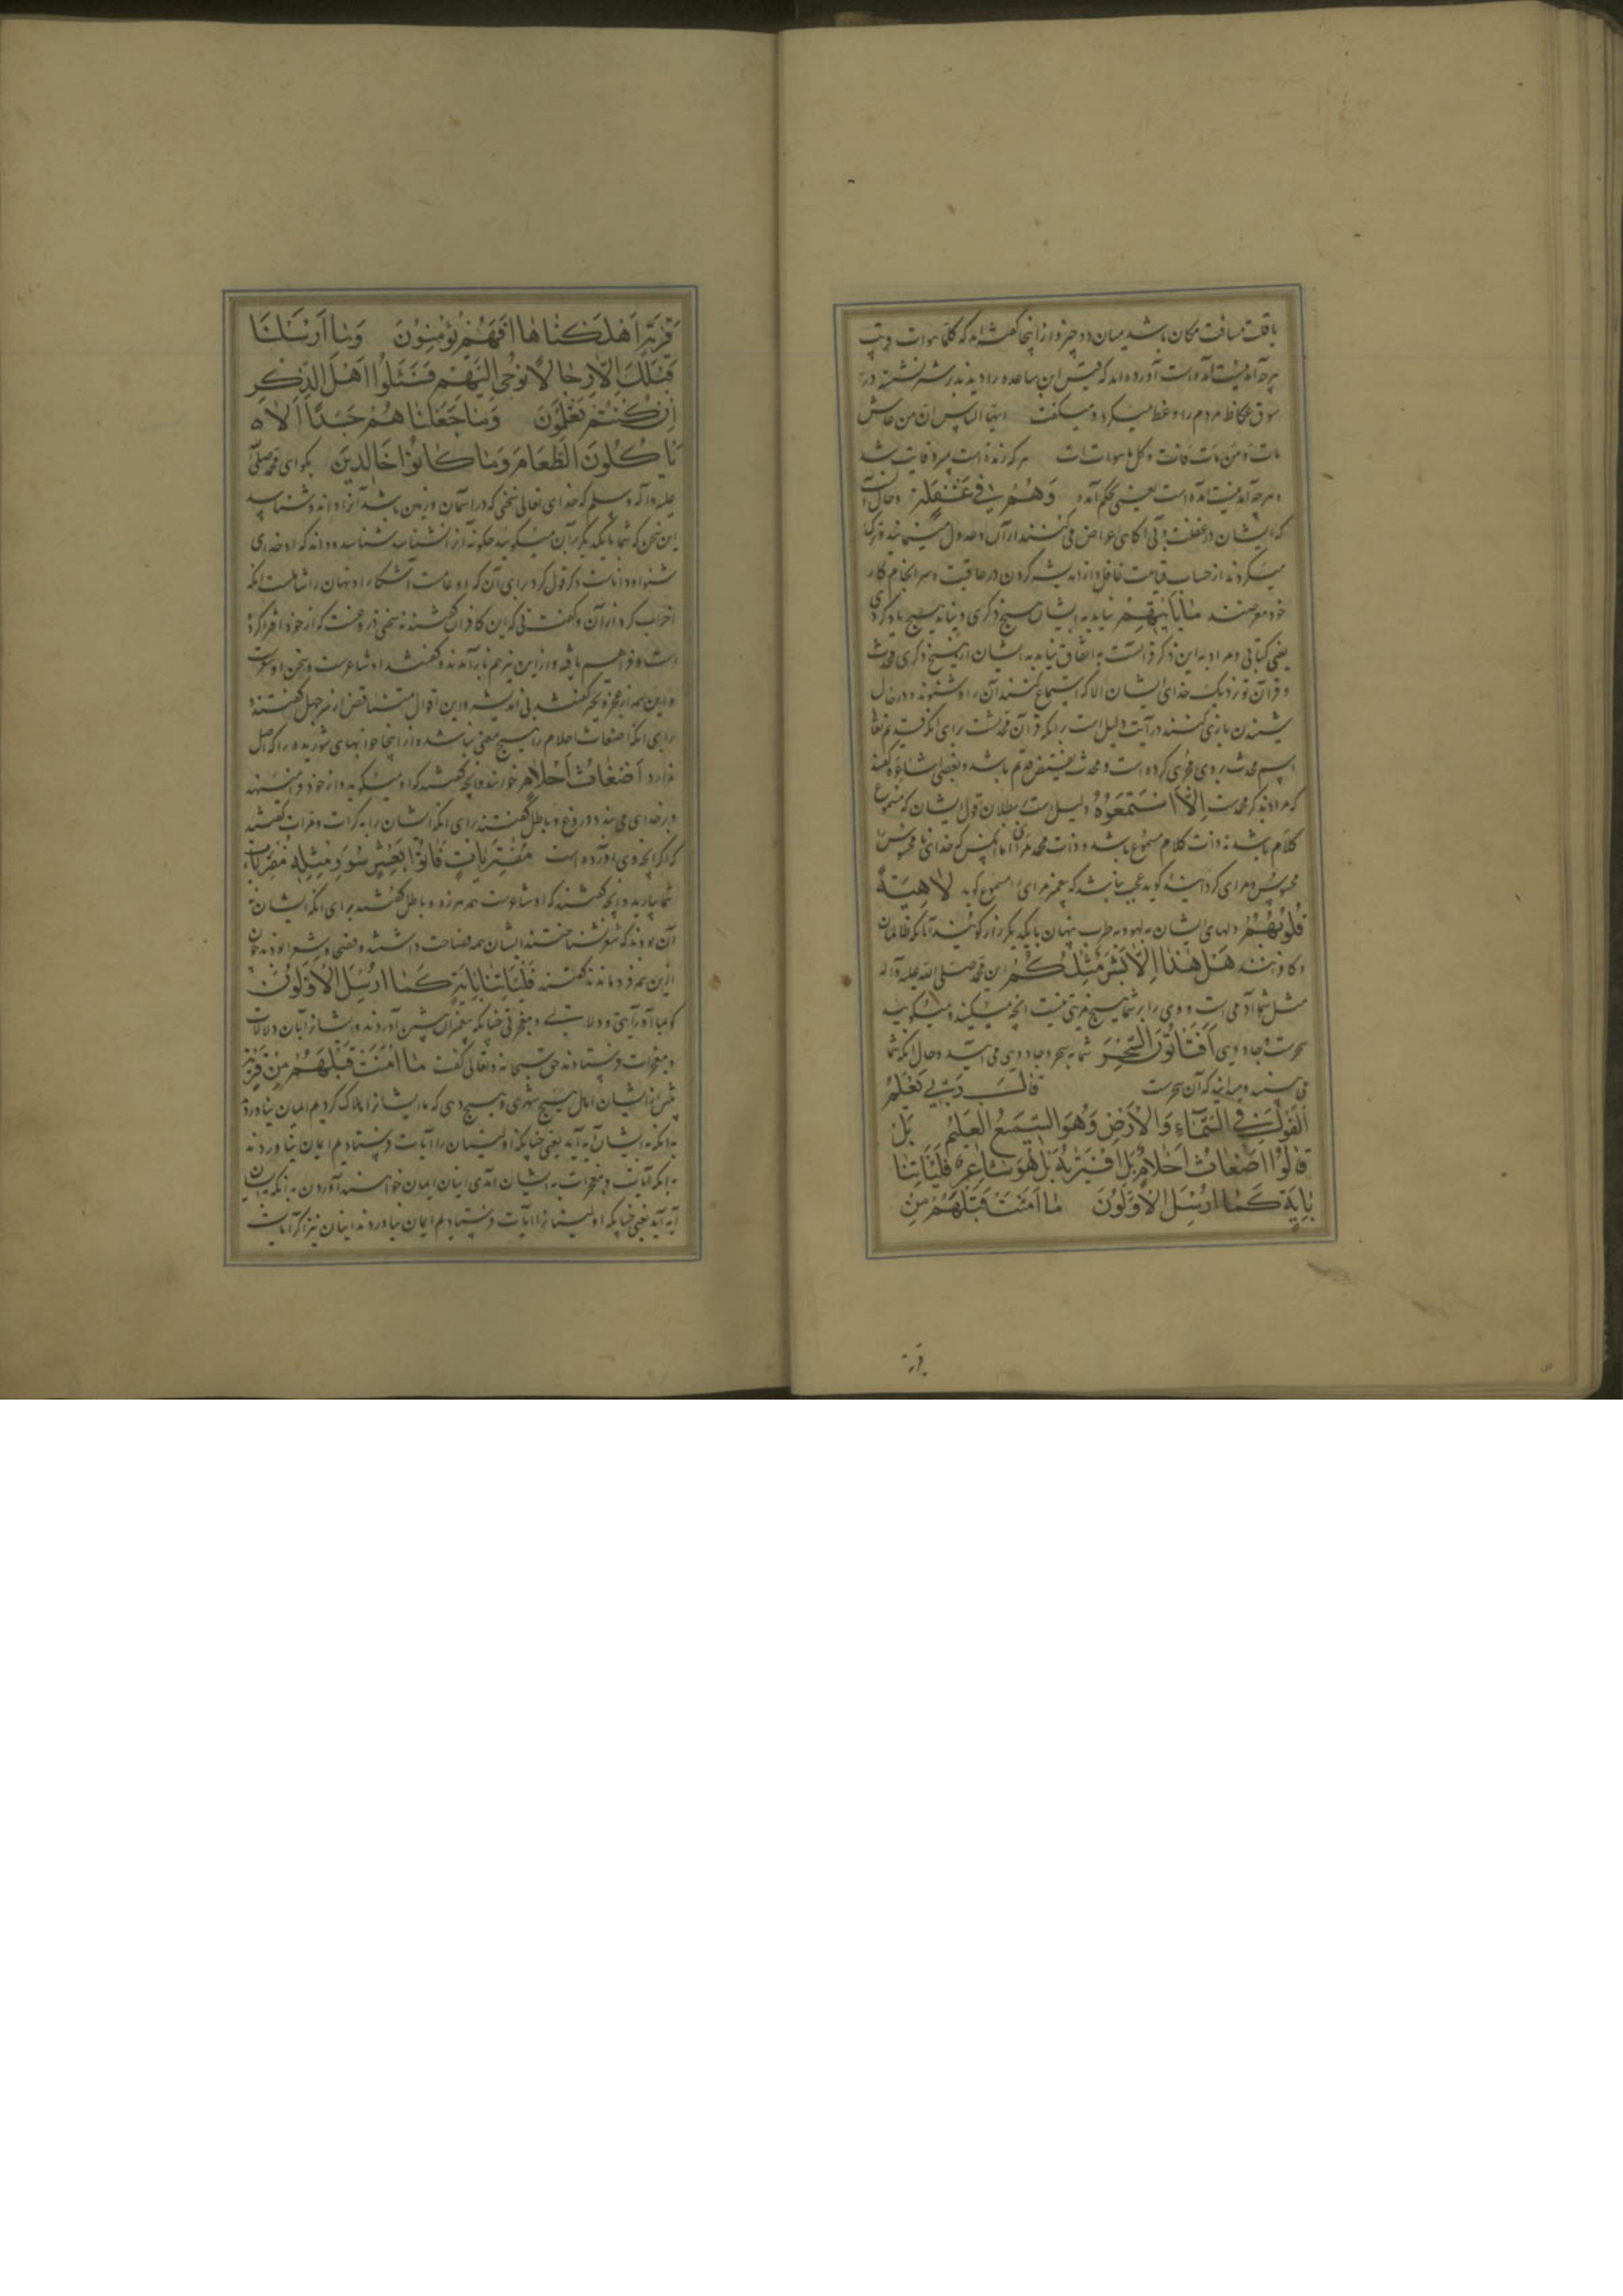 با قلت مسافت مکان باشد میان دو چیز و از اینجا گفته‌اند که کلما هوات قریب
هرچه آمدنیست آمده است آورده‌اند که قیس ابن ساعده را دیدند بر شتر نشسته در
سوق عکاظ مردم را وعظ میکرد و میگفت ایها الناس ان من عاش
مات و من مات فات و کل ما هوات ات هر که زنده است بمیرد فایت شد
و هرچه آمدنیست آمده است یعنی بحکم آمده وَهُمْ فِي غَفْلَةٍ و حال آنست
که ایشان در غفلت و بی آکاهی اعراض می کنند از آن و عدول مینمایند
میگردند از حساب قیامت غافل و از اندیشه کردن در عاقبت و سرانجام کار
خود معرضند مَا يَأْتِيهِمْ نیاید به ایشان هیچ ذکری و نیاید هیچ یاد کردی
یعنی کتابی و مراد به این ذکر قرانست به اتفاق نیاید به ایشان از هیچ ذکری محدث
و قرآن تو نزدیک خدای ایشان الا که استماع کنند آن را و شنوند و در حال
شنیدن بازی کنند در آیت دلیل است بر آنکه قرآن محدثست برای آنکه قدیم تعالی
اسم محدث بر وی مجری کرده است و محدث نقیض قدیم باشد و بعضی اشاعره گفتند
که مراد ذکر محدثست اِلَّا اسْتَمَعُوهُ دلیل است بطلان قول ایشان که مسموع
کلام باشد نه ذات کلام مسموع باشد و ذات محمد مرئی اما آنکس که خدای نا محسوس را
محسوس و مرای کرداند گوید عجب نباشد که پیغمبر مرای را مسموع گوید لَاهِيَةً
قُلُوبُهُمْ دلهای ایشان به لهو و به طرب پنهان با یکدیگر راز گویند آنانکه ظالمان
و کافرانند هَلْ هَذَا إِلَّا بَشَرٌ مِثْلُكُمْ این محمد صلی الله علیه و آله
مثل شما آدمی است و وی را بر شما هیچ مزیتی نیست آنچه میکند و میگوید
سحرست و جادویی أَفَتَأْتُونَ السِّحْرَ شما به سحر و جادویی می آیید و حال آنکه شما
می بینید و میدانید که آن سحرست قَالَ رَبِّي يَعْلَمُ
الْقَوْلَ فِي السَّمَاءِ وَالْأَرْضِ وَهُوَ السَّمِيعُ الْعَلِيمُ بَلْ
قَالُوا أَضْغَاثُ أَحْلَامٍ بَلِ افْتَرَيهُ بَلْ هُوَ شَاعِرٌ فَلْيَأْتِنَا
بِآيَةٍ كَمَا أُرْسِلَ الْأَوَّلُونَ مَا آمَنَتْ قَبْلَهُمْ مِنْ
قریة
قَرْيَةٍ أَهْلَكْنَاهَا أَفَهُمْ يُؤْمِنُونَ وَمَا أَرْسَلْنَا
قَبْلَكَ إِلَّا رِجَالًا نُوحِي إِلَيْهِمْ فَسْئَلُوا أَهْلَ الذِّكْرِ
إِنْ كُنْتُمْ تَعْلَمُونَ وَمَا جَعَلْنَاهُمْ جَسَدًا لَا
يَأْكُلُونَ الطَّعَامَ وَمَا كَانُوا خَالِدِينَ بگو ای محمد صلی الله
علیه و آله و سلم که خدای تعالی سخنی که در آسمان و زمین باشد آنرا داند و شناسد
این سخن که شما با یکدیگر بر آن میگویید چگونه آنرا نشناسد شناسد و داند که او خدای
شنوا و داناست ذکر قول کرد برای آن که او عامست آشکارا و نهان را شاملست آنکه
اضراب کرد از آن و گفت نی که این کافران گفتند نه سخنی دروغست که از خود افترا کرده
است و فراهم بافته و از این نیز هم باز آمدند و گفتند او شاعرست و سخن او شعرست
و این همه از عجز و تحیر گفتند بی اندیشه و این اقوال متناقض از سر جهل گفتند
برای آنکه اضغاث احلام را هیچ معنی نباشد و از اینجا خوابهای شوریده را که اصل
ندارد أَضْغَاثُ أَحْلَامٍ خوانند و آنچه گفتند که او میگوید و از خود می نهد
و بر خدای می بندد دروغ و باطل گفتند برای آنکه ایشان را به کرات و مرات گفتند
که اگر آنچه وی آورده است مُفْتَرَيَاتٍ فَأْتُوا بِعَشْرِ سُوَرٍ مِثْلِهِ مُفْتَرَيَاتٍ
شما بیارید و آنچه گفتند که او شاعرست هم هرزه و باطل گفتند برای آنکه ایشان نه
آن بودند که شعر نشناختند ایشان همه فصاحت داشتند و فصحا و شعرا بودند چون
ازین همه فرو ماندند گفتند فَلْيَأْتِنَا بِآيَةٍ كَمَا أُرْسِلَ الْأَوَّلُونَ
گو بما آور آیتی و دلالتی و معجزتی چنانکه پیغمبران پیشین آوردند و ایشانرا با آن دلالات
و معجزات فرستادند حق سبحانه و تعالی گفت مَا آمَنَتْ قَبْلَهُمْ مِنْ قَرْيَةٍ
پیش از ایشان اهل هیچ شهری و هیچ دهی که ما ایشانرا هلاک کردیم ایمان نیاوردند
به آنکه به ایشان آیه آید یعنی چنانکه اولینان را آیات فرستادیم ایمان نیاوردند
به آنکه آیات و معجزات به ایشان آمدی اینان ایمان نخواهند آوردن به آنکه به ایشان
آیه آید یعنی چنانکه اولینانرا آیات فرستادیم ایمان نیاوردند اینان نیز اگر آیات